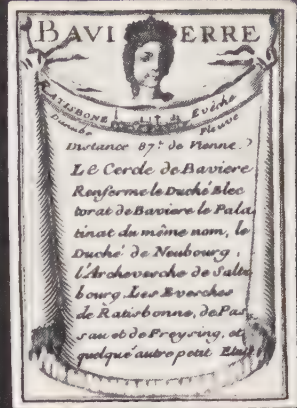 BAVIERRE
RATISBONE Evêche
Danube Fleuve
Distance 87 l. de Vienne.
Le Cercle de Baviere
Renferme le Duché Elec
torat de Baviere le Pala
tinat du même nom, le
Duché de Neubourg,
l'Archevesche de Saltz
bourg, Les Evesches
de Ratisbonne, de Pas
sau et de Freysing, et
quelque autre petit Etat